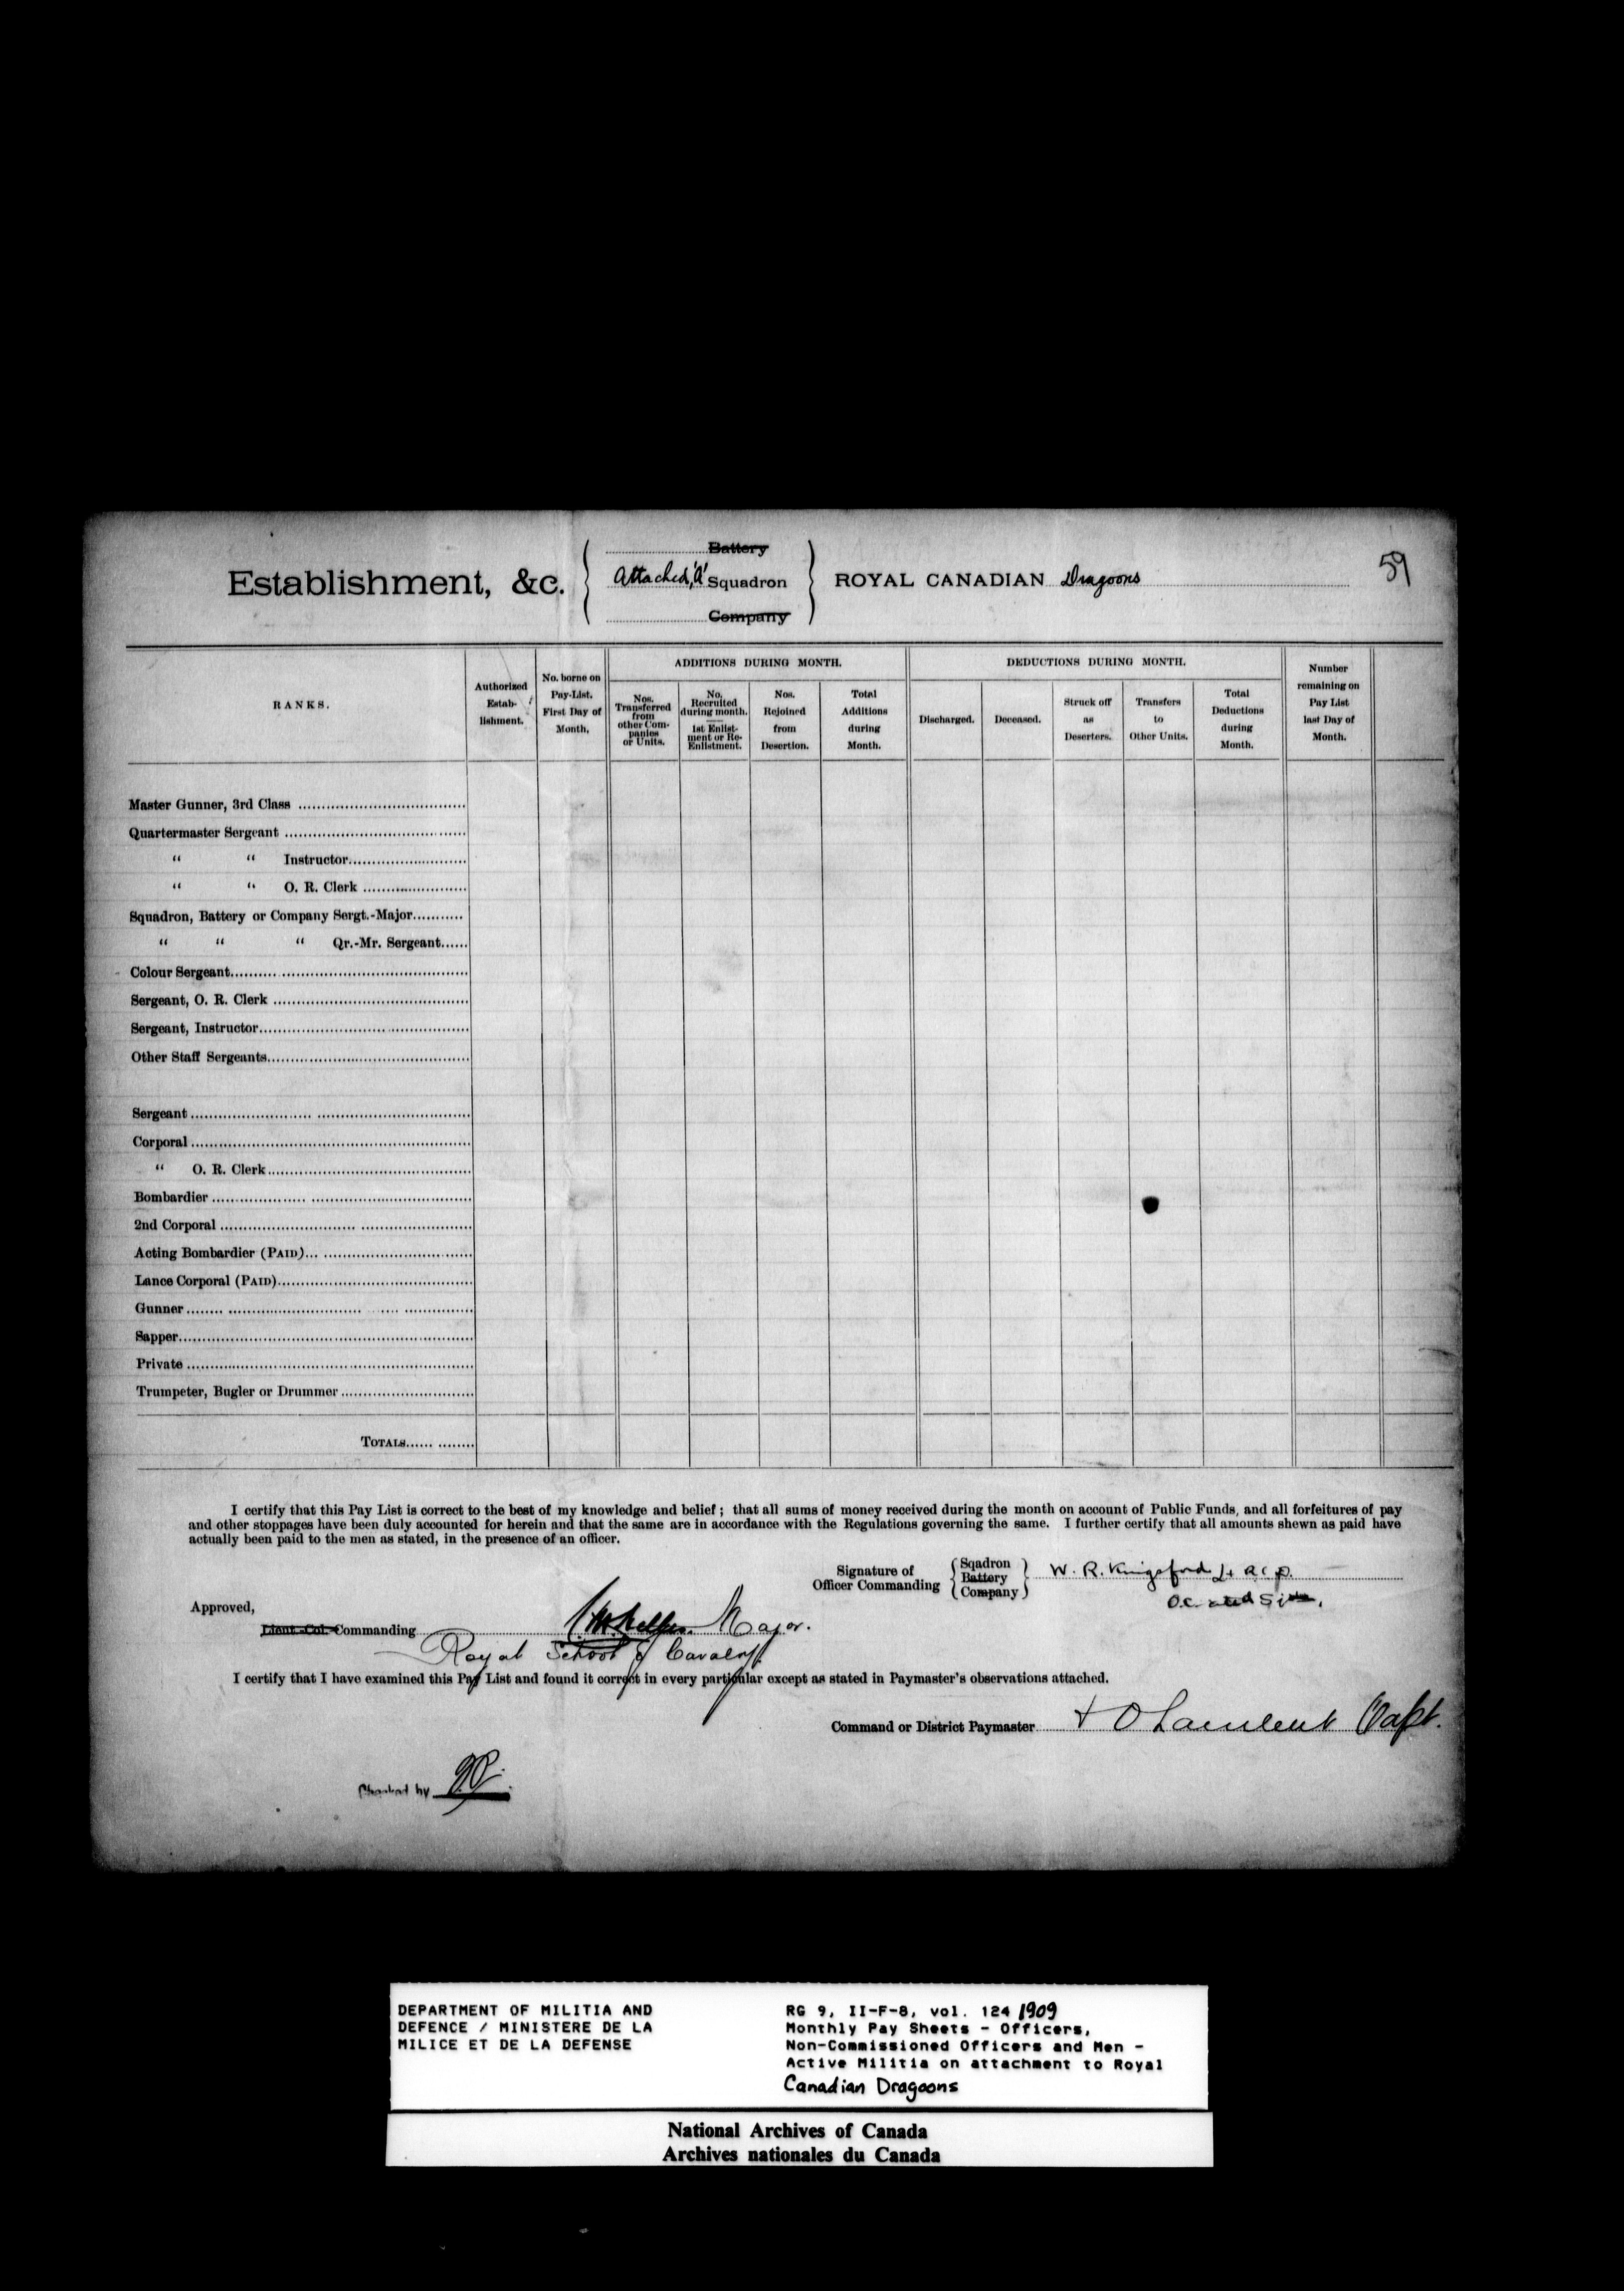 Battery
Establishment, &c. Attached, 'A' Squadron ROYAL CANADIAN Dragoons 59
Company
RANKS.
Authorized Estab- lishment.
No. borne on Pay-List, First Day of Month.
ADDITIONS DURING MONTH.
Nos. Transferred from other Com- panies or Units.
No. Recruited during month. 1st Enlist- ment or Re- Enlistment.
Nos. Rejoined from Desertion.
Total Additions during Month.
DEDUCTIONS DURING MONTH.
Discharged.
Deceased.
Struck off as Deserters.
Transfers to Other Units.
Total Deductions during Month.
Number remaining on Pay List last Day of Month.
Master Gunner, 3rd Class
Quartermaster Sergeant
“ “ Instructor
“ “ O. R. Clerk
Squadron, Battery or Company Sergt.-Major
“ “ “ Qr.-Mr. Sergeant
Colour Sergeant
Sergeant, O. R. Clerk
Sergeant, Instructor
Other Staff Sergeants
Sergeant
Corporal
“ O. R. Clerk
Bombardier
2nd Corporal
Acting Bombardier (PAID)
Lance Corporal (PAID)
Gunner
Sapper
Private
Trumpeter, Bugler or Drummer
TOTALS
I certify that this Pay List is correct to the best of my knowledge and belief; that all sums of money received during the month on account of Public Funds, and all forfeitures of pay
and other stoppages have been duly accounted for herein and that the same are in accordance with the Regulations governing the same. I further certify that all amounts shewn as paid have
actually been paid to the men as stated, in the presence of an officer.
Signature of Officer Commanding
Sqadron
Battery
Company
W. R. Kingsford Lt
O.C.
Approved,
Lieut.-Col. Commanding Major.
Royal School of Cavalry
I certify that I have examined this Pay List and found it correct in every particular except as stated in Paymaster's observations attached.
Command or District Paymaster Capt.
Checked by
DEPARTMENT OF MILITIA AND
DEFENCE / MINISTERE DE LA
MILICE ET DE LA DEFENSE
RG 9, II-F-8, vol. 124 1909
Monthly Pay Sheets - Officers,
Non-Commissioned Officers and Men -
Active Militia on attachment to Royal
Canadian Dragoons
National Archives of Canada
Archives nationales du Canada